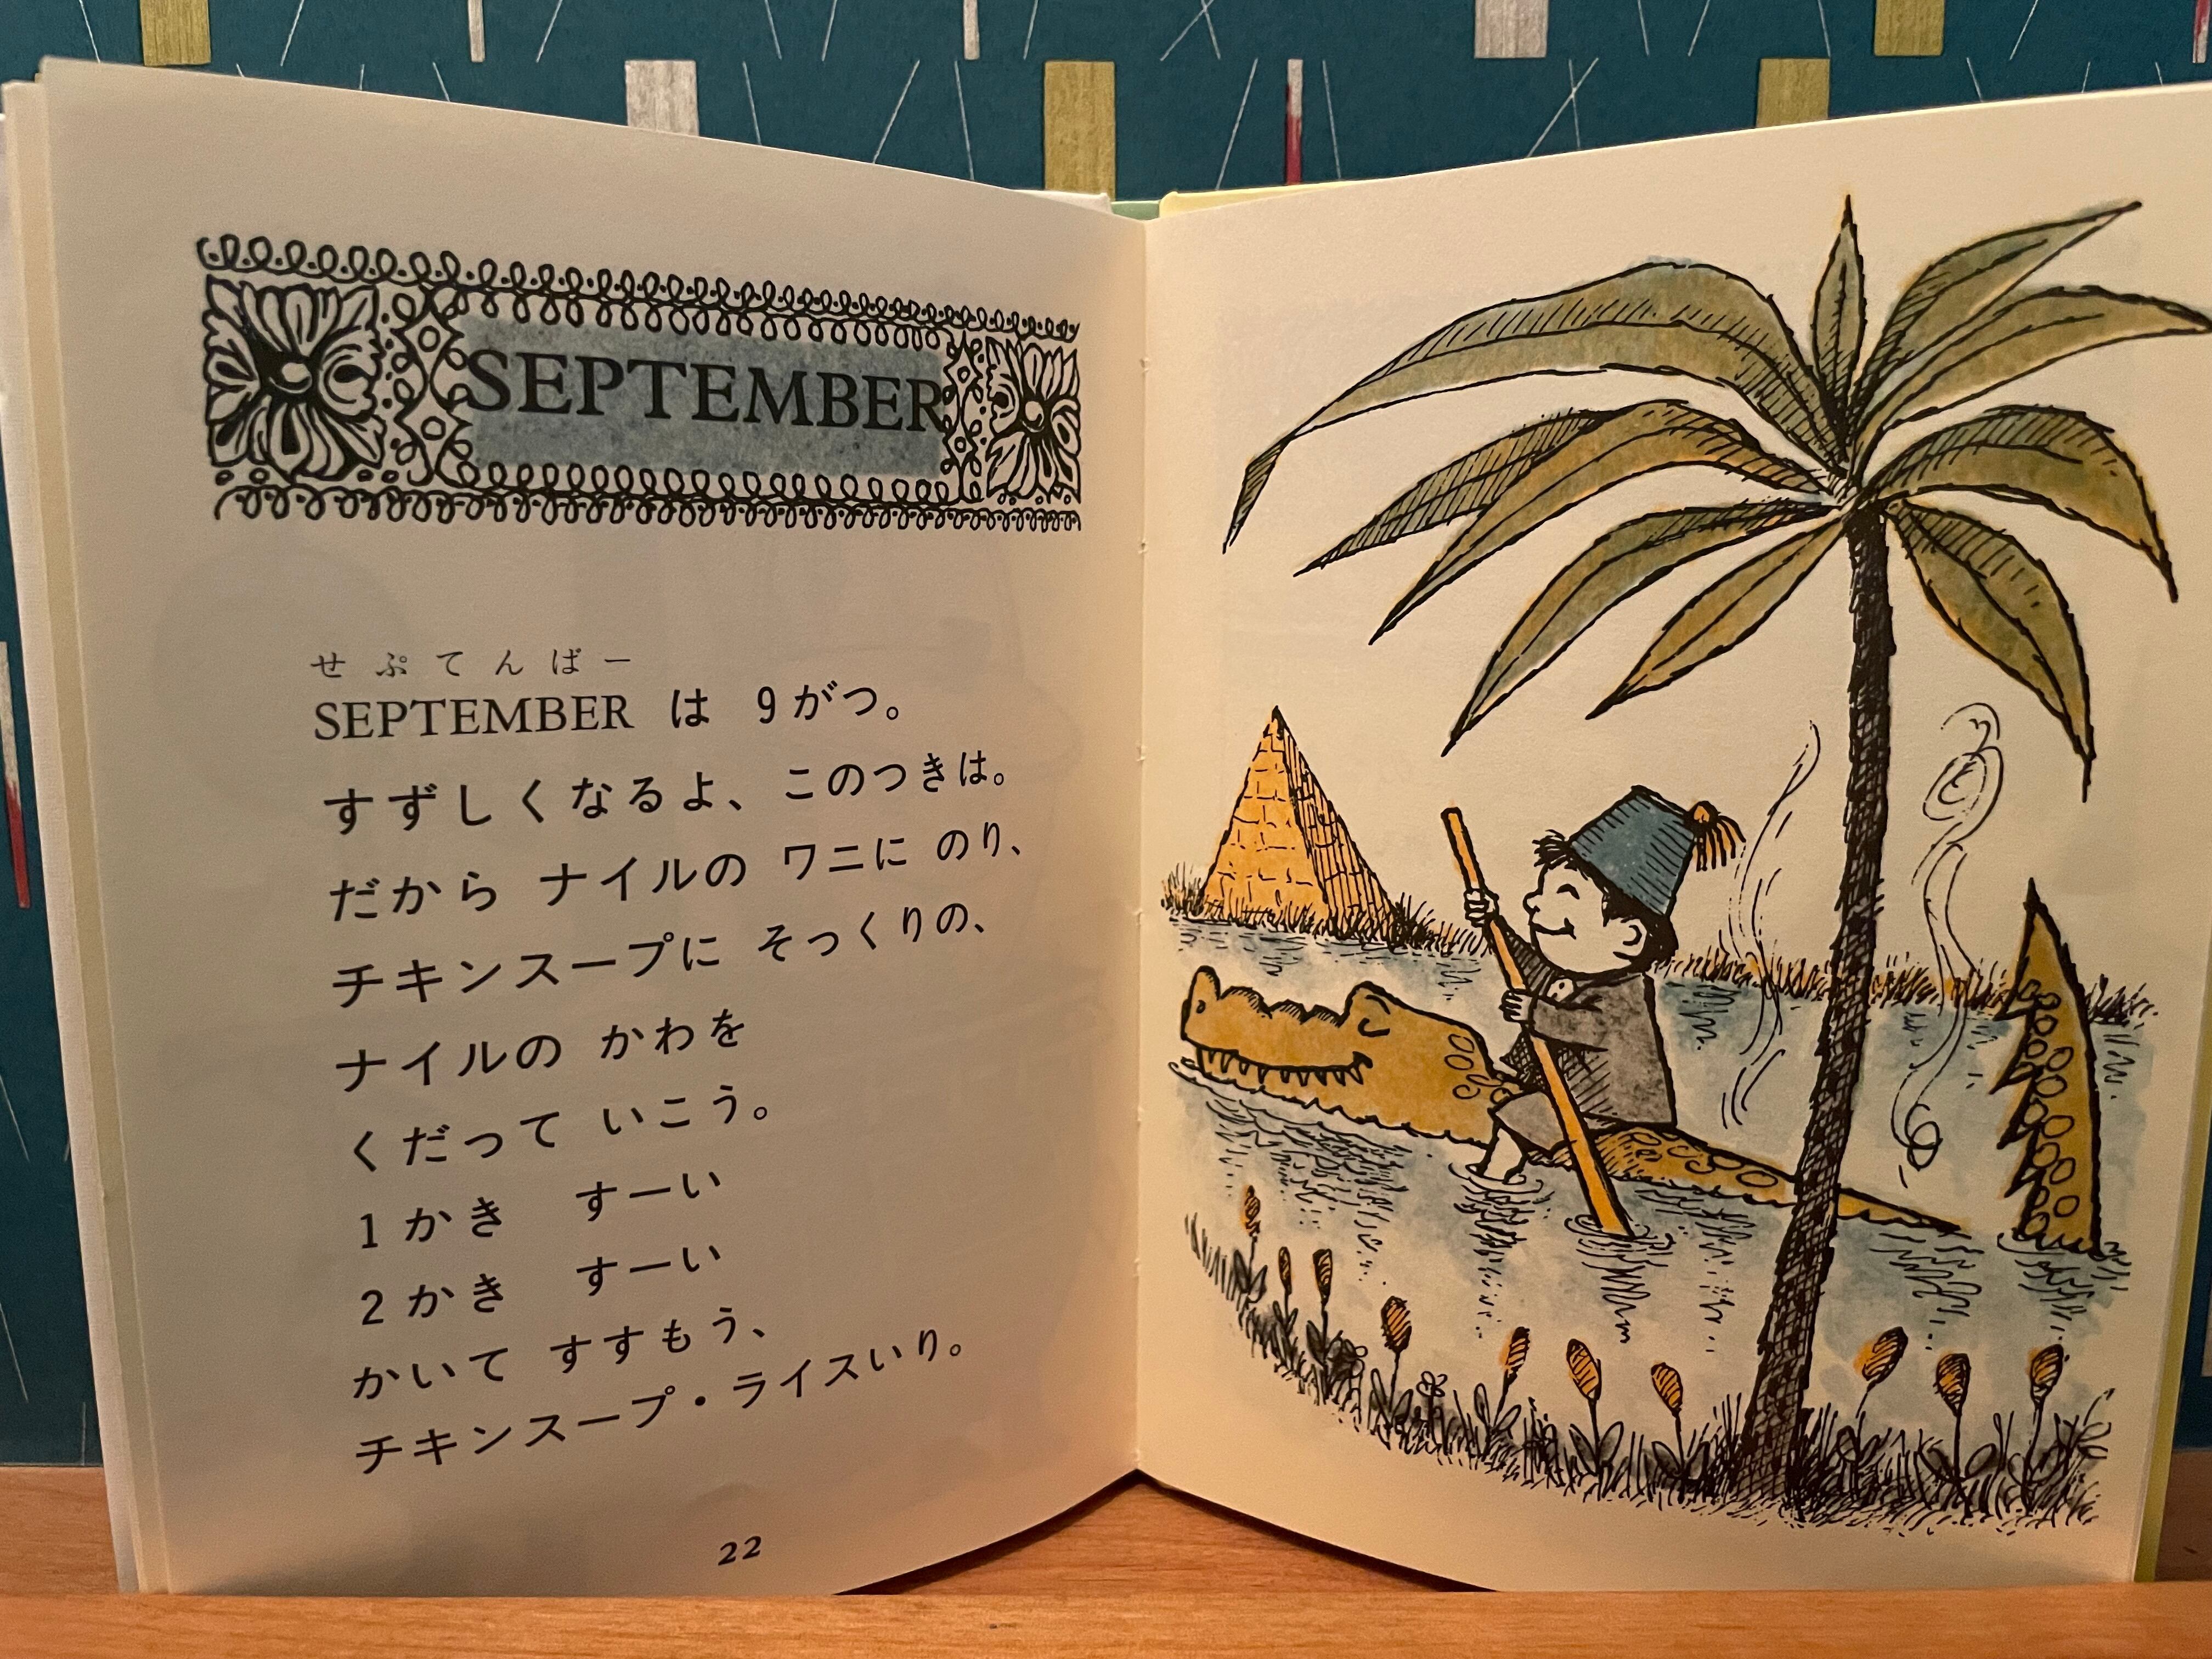 SEPTEMBER
せぷてんばー
SEPTEMBER は 9がつ。
すずしくなるよ、このつきは。
だから ナイルの ワニに のり、
チキンスープに そっくりの、
ナイルの かわを
くだって いこう。
1かき すーい
2かき すーい
かいて すすもう、
チキンスープ・ライスいり。
22